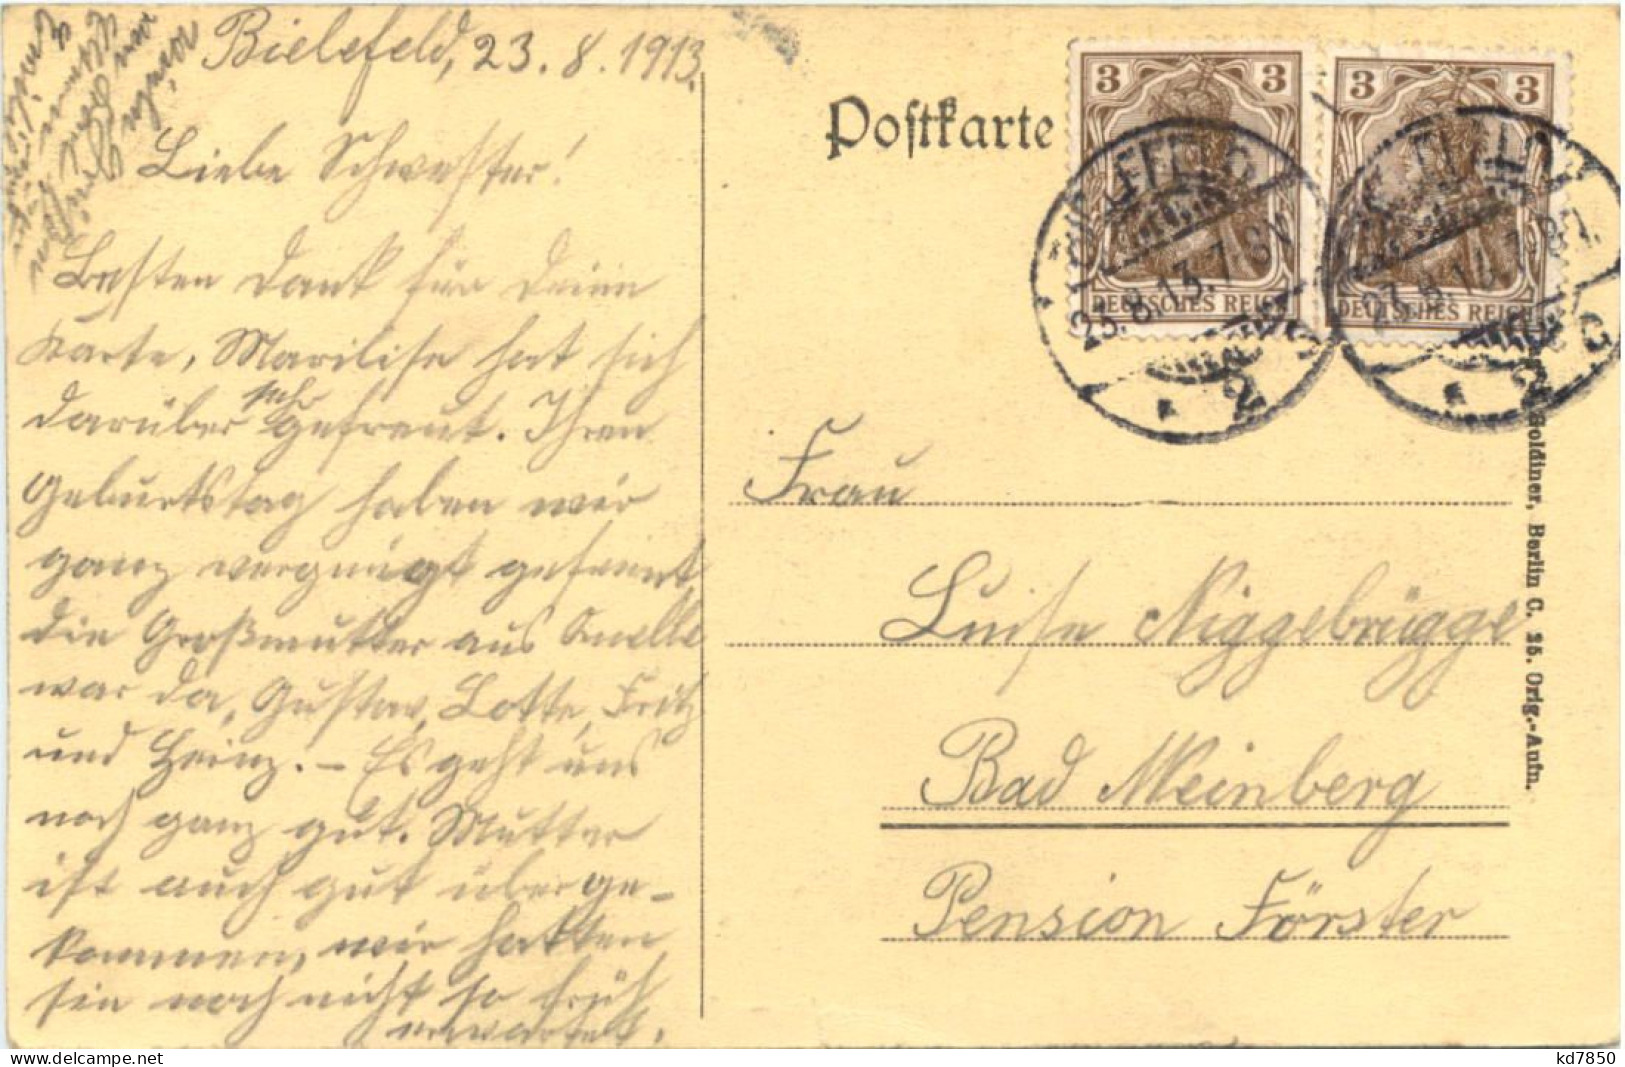 Bielefeld, 23. 8. 1913.
Liebe Schwester!
Besten Dank für Deine
Karte, Marilise hat sich
darüber sehr gefreut. Ihren
Geburtstag haben wir
ganz vergnügt gefeiert,
die Großmutter aus Quelle
war da, Gustav, Lotte, Fritz
und Heinz. – Es geht uns
noch ganz gut. Mutter
ist auch gut überge-
kommen, wir hatten
sie noch nicht so früh
erwartet.
Postkarte
3 3
DEUTSCHES REICH
3 3
DEUTSCHES REICH
BIELEFELD
23.8.13. 7
2
Frau
Luise Niggebrügge
Bad Meinberg
Pension Förster
Goldiner, Berlin C. 25. Orig.-Aufn.
kd7850